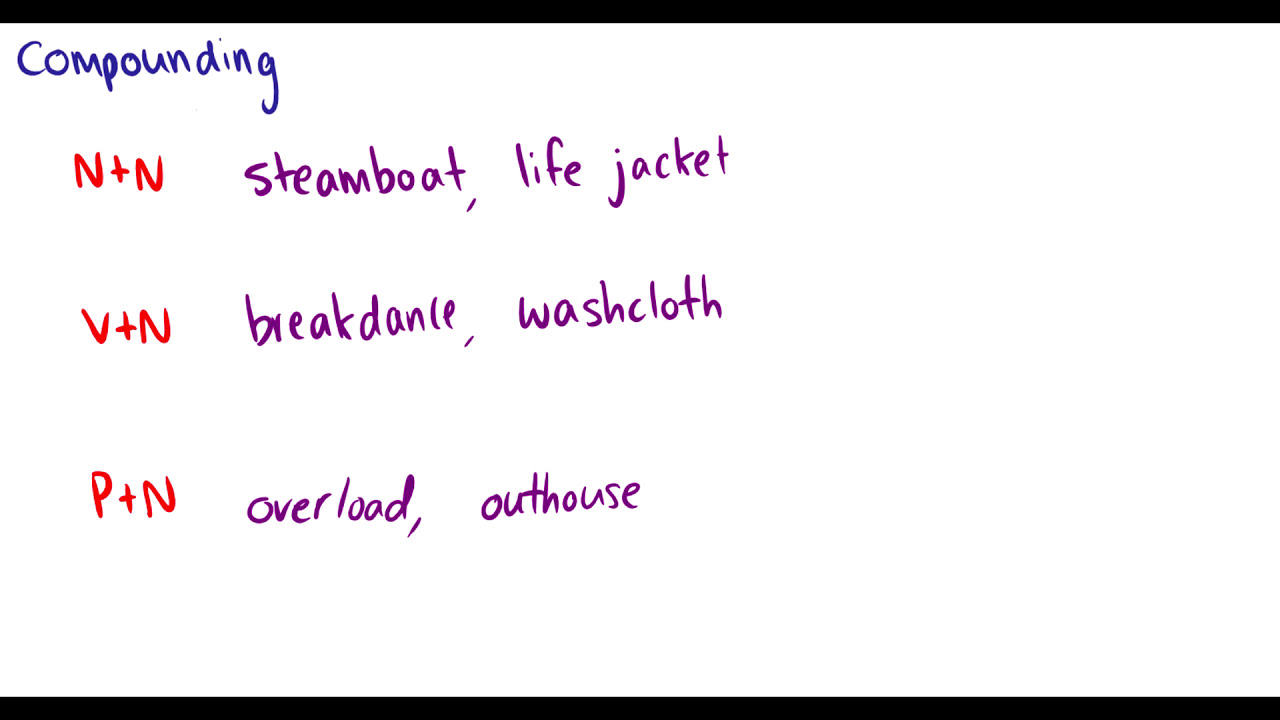 Compounding
N+N steamboat, life jacket
V+N breakdance, washcloth
P+N overload, outhouse